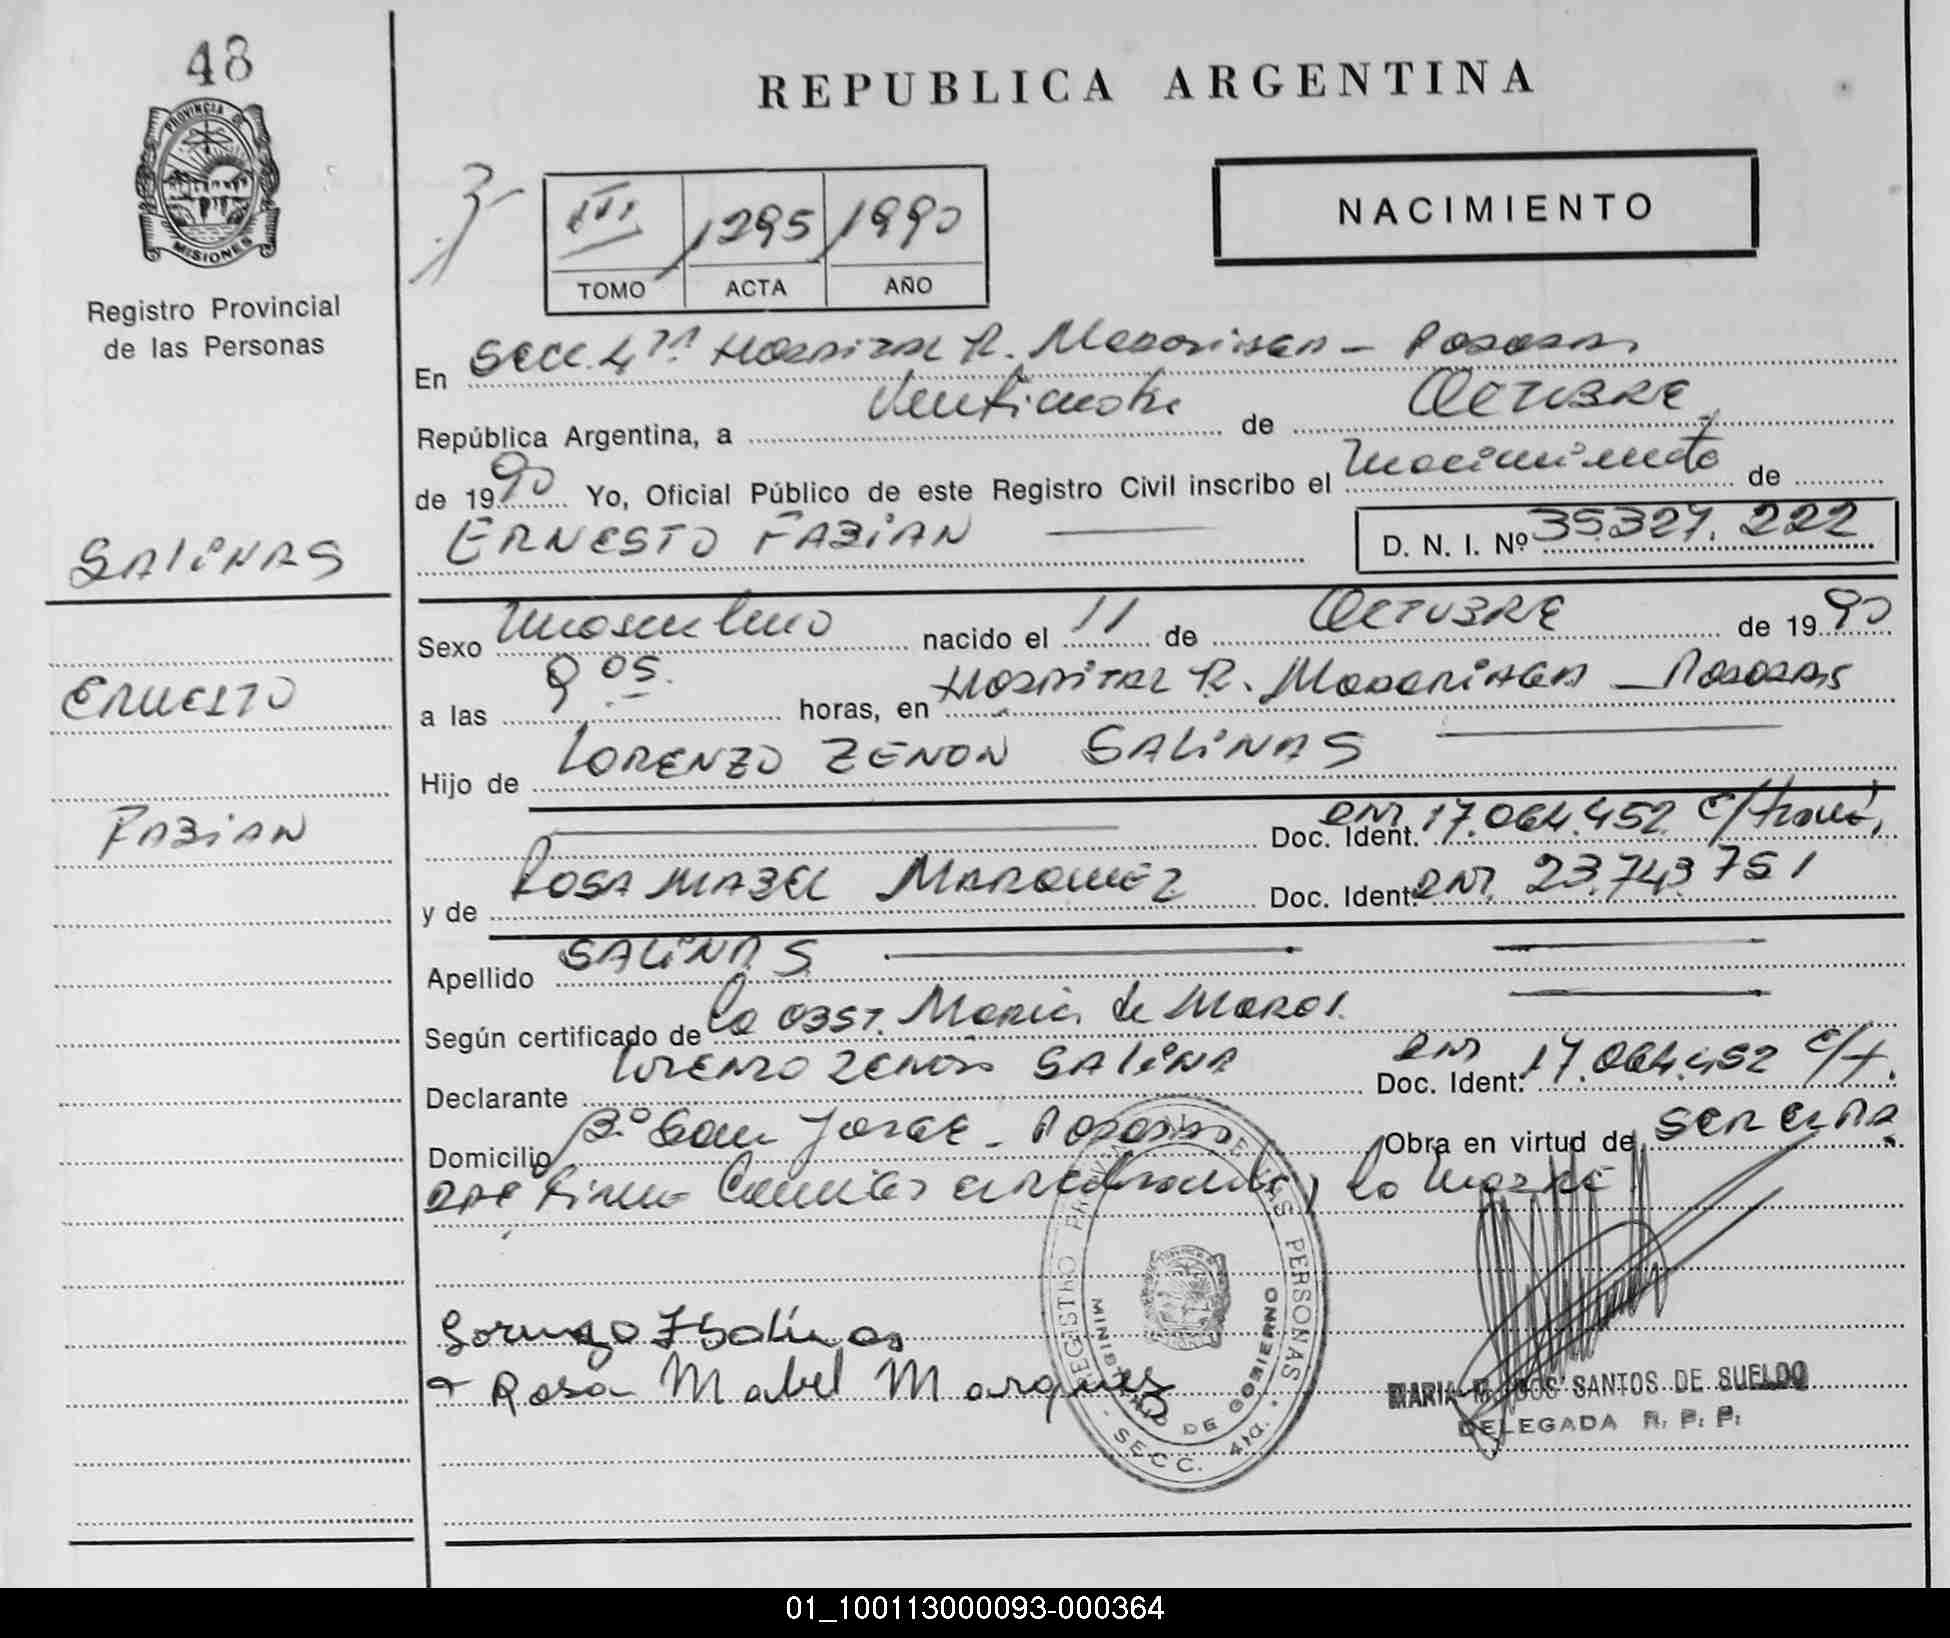 48
REPUBLICA ARGENTINA
PROVINCIA DE
MISIONES
Registro Provincial
de las Personas
III 1295 1990
TOMO ACTA AÑO
NACIMIENTO
En Secc. 4ta Hospital R. Madariaga - Posadas
República Argentina, a Veintinueve de OCTUBRE
de 1990 Yo, Oficial Público de este Registro Civil inscribo el nacimiento de
SALINAS
ERNESTO FABIAN D. N. I. Nº 35.327.222
Sexo masculino nacido el 11 de OCTUBRE de 1990
ERNESTO
a las 9 05 horas, en Hospital R. Madariaga - Posadas
Hijo de LORENZO ZENON SALINAS
FABIAN
Doc. Ident. DNI 17.064.452 c/
y de ROSA MABEL MARQUEZ Doc. Ident. DNI 23.743.751
Apellido SALINAS
Según certificado de la OBST. Maria de
Declarante LORENZO ZENON SALINA Doc. Ident. DNI 17.064.452 c/
Domicilio Bº San Jorge - Posadas Obra en virtud de
firma la madre
Lorenzo Z Salinas
Rosa Mabel Marquez
REGISTRO PROVINCIAL DE LAS PERSONAS
MINISTERIO DE GOBIERNO
SECC. 4ta.
MARIA M. DOS SANTOS DE SUELDO
DELEGADA R. P. P.
01_100113000093-000364